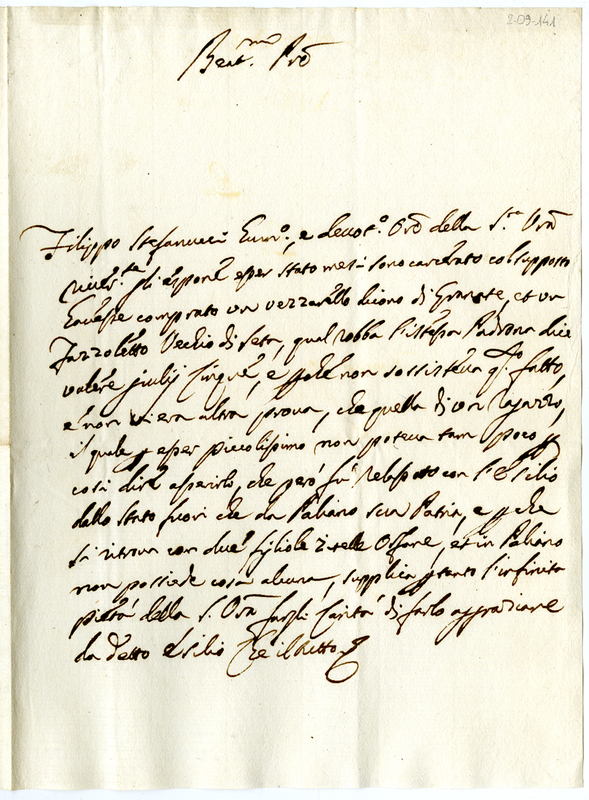 2-09-141
Beat.mo Prẽ
Filippo Stefanucci Hum.o, e devot.o Orẽ della S.tà Vrã
river.te gli espone esser stato mesi sono carcerato col supposto
havesse comprato un vezzarello buono di Granate, et un
Fazzoletto Vecchio di seta, qual robba l'istessa Padrona dice
valere giulij Cinque, e perche non sossisteva q.to fatto,
e non vi era altra prova, che quella di un Ragazzo,
il quale p esser piccolissimo non poteva tam poco p
così dire asserirlo, che però fù relassato con l'Esilio
dallo stato fuori che da Paliano sua Patria, e perche
si ritrova con due figliole Zitelle Orfane, et in Paliano
non possiede cosa alcuna, supplica ptanto l'infinita
pietà della S. Vrã fargli Carità di farlo aggraziare
da detto Esilio Che il tutto